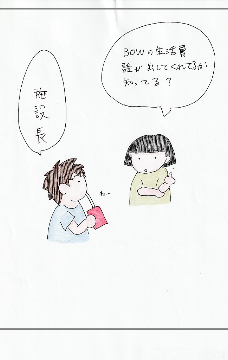 BOWの生活費
誰が出してくれてるか
知ってる？
施設長